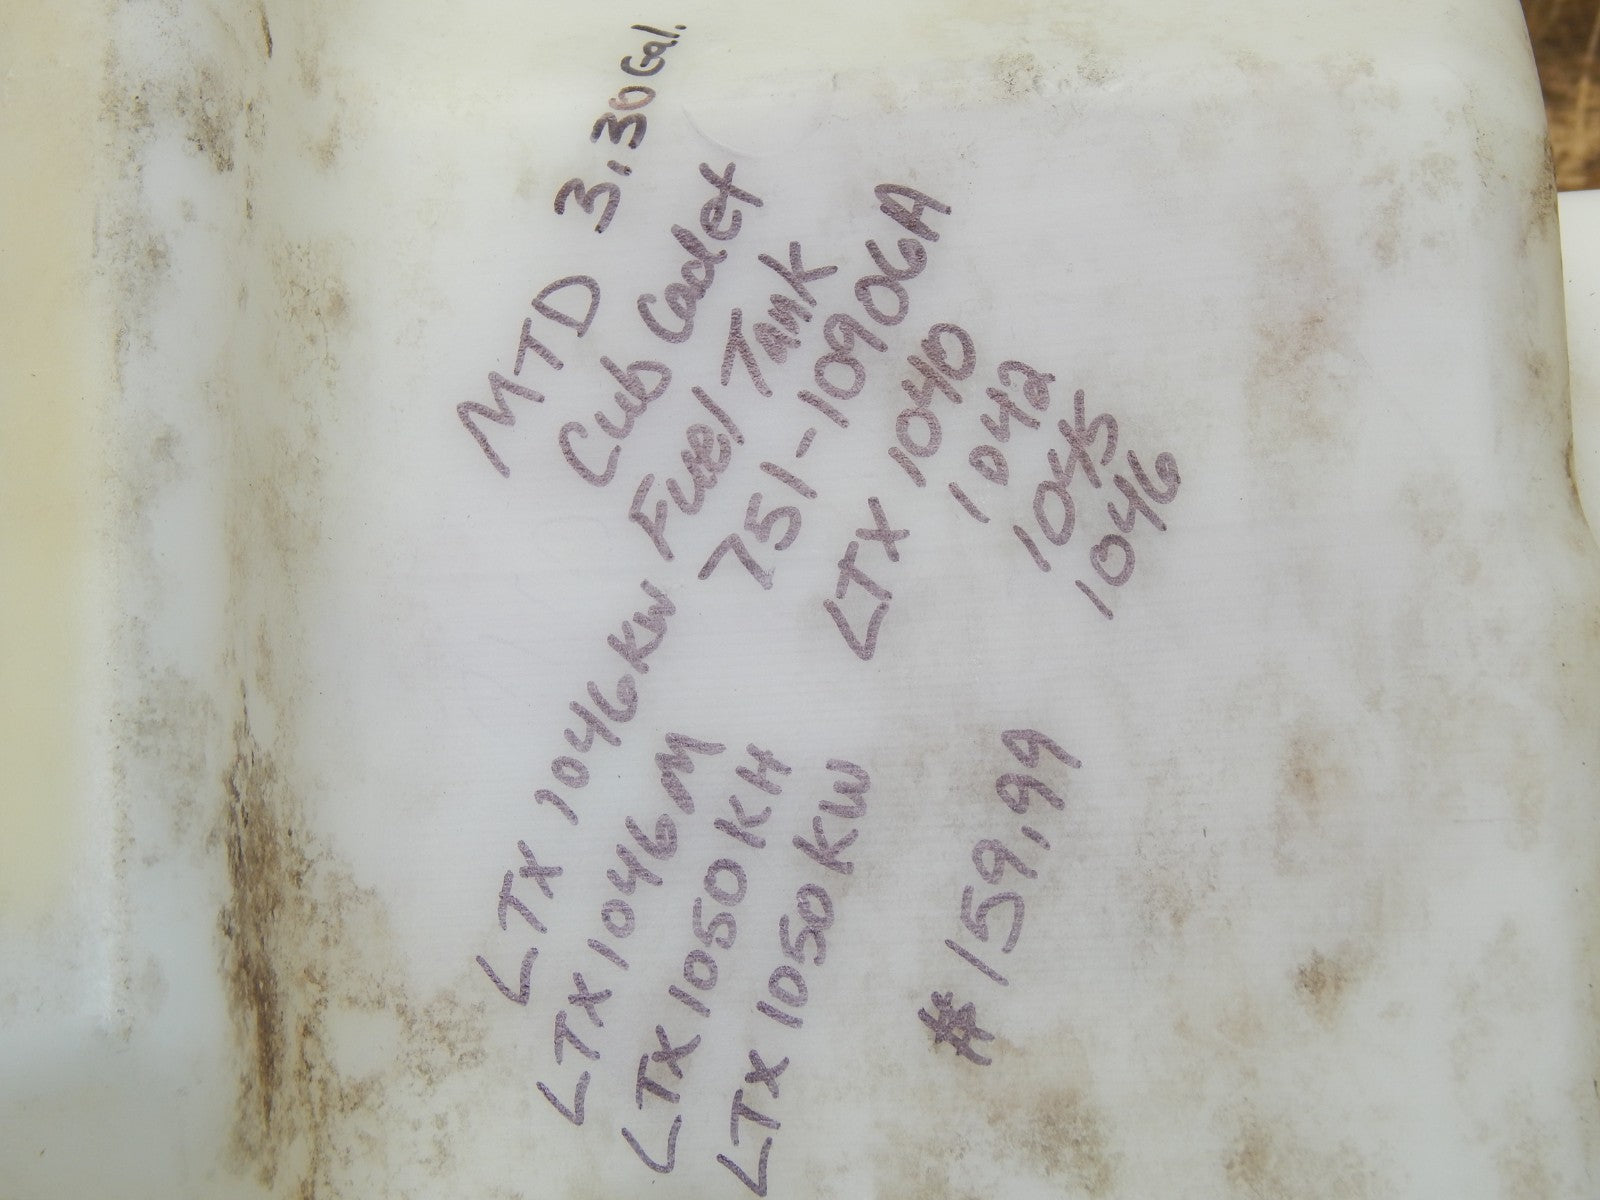 MTD 3.30 Gal.
Cub Cadet
Fuel Tank
751-10906A
LTX 1040
1042
1045
1046
LTX 1046KW
LTX 1046M
LTX 1050KH
LTX 1050KW
# 159.99